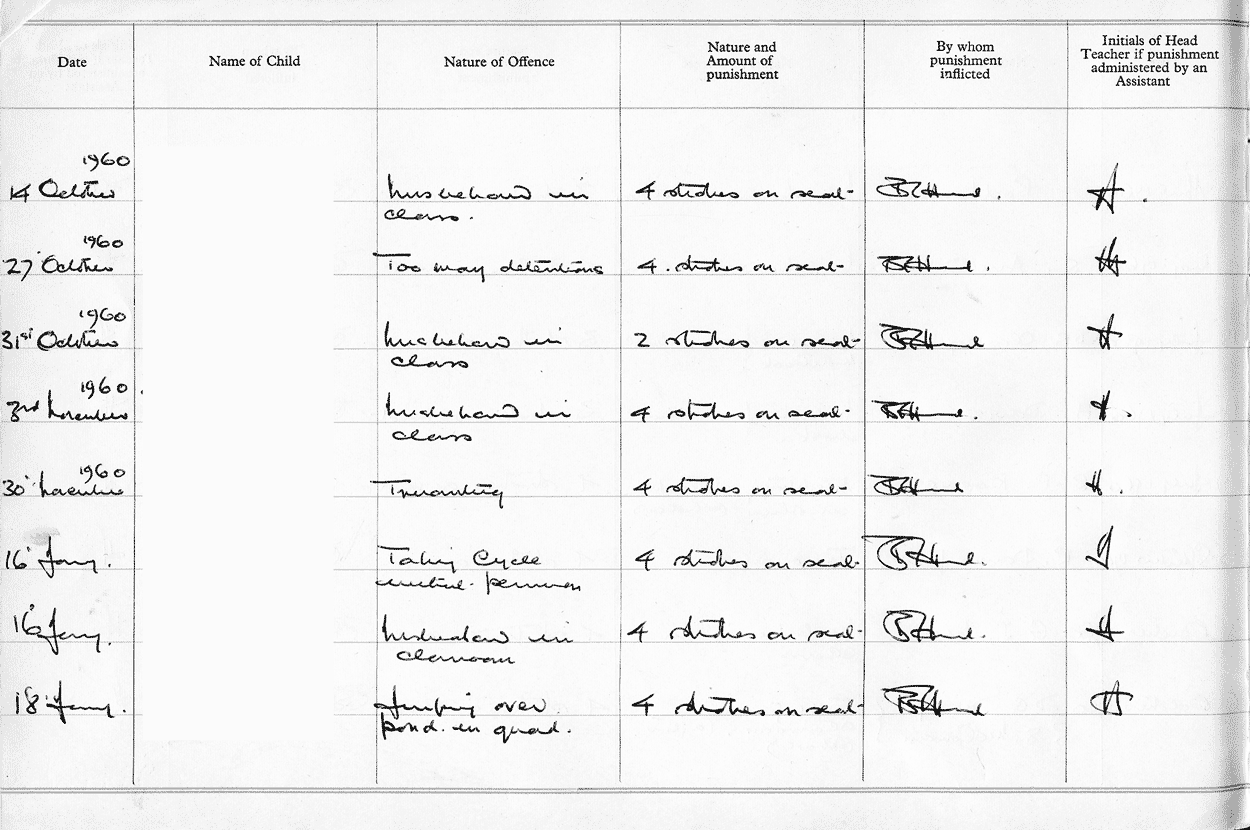 Date
Name of Child
Nature of Offence
Nature and
Amount of
punishment
By whom
punishment
inflicted
Initials of Head
Teacher if punishment
administered by an
Assistant
1960
14 October
Misbehaviour in
class.
4 strokes on seat
1960
27 October
Too many detentions
4 strokes on seat
1960
31st October
Misbehaviour in
class
2 strokes on seat
1960
3rd November
Misbehaviour in
class
4 strokes on seat
1960
30 November
Truanting
4 strokes on seat
16 Jany.
Taking Cycle
without permission
4 strokes on seat
16 Jany.
Misbehaviour in
classroom
4 strokes on seat
18 Jany.
Jumping over
pond in quad.
4 strokes on seat